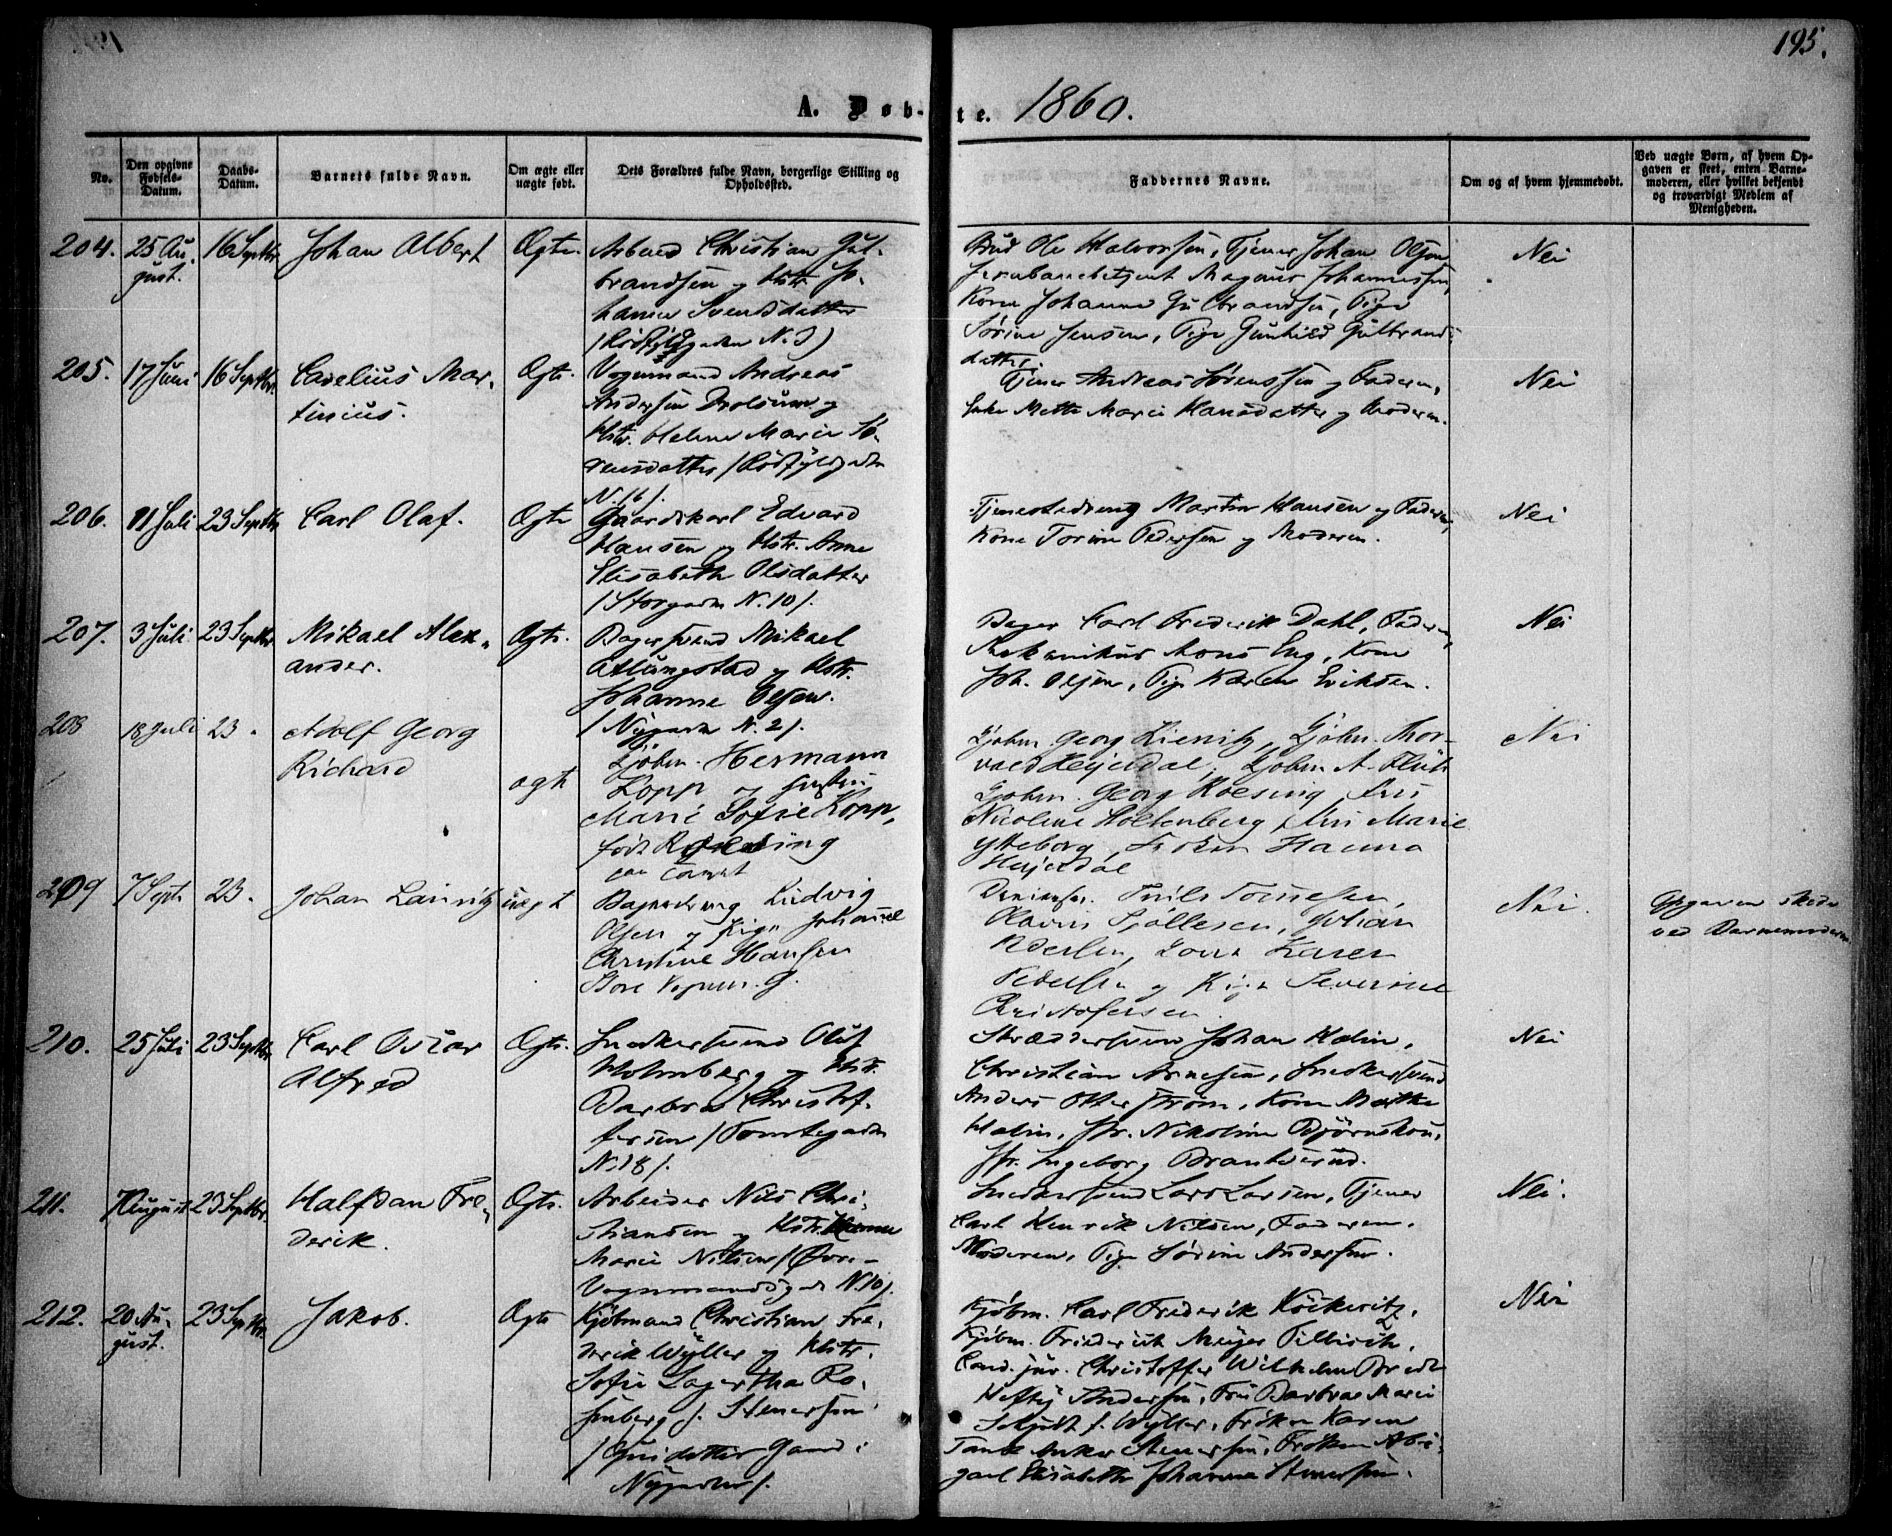 195.
A. Døb-te. 1860.
No.
Den opgivne Fødsels-Datum.
Daabs-Datum.
Barnets fulde Navn.
Om ægte eller uægte født.
Dets Forældres fulde Navn, borgerlige Stilling og Opholdsted.
Faddernes Navne.
Om og af hvem hjemmedøbt.
Ved uægte Børn, af hvem Opgaven er skeet, enten Barnemoderen, eller hvilket bekjendt og troværdigt Medlem af Menigheden.
204.
25 Au-
gust.
16 Septbr
Johan Albert
Ægte
Arbeid Christian Gul-
brandsen og Hstr. Jo-
hanne Svendsdatter
(Rødfyldgaden N. 3)
Bud Ole Halvorsen, Tjener Johan Olsen
Jernbanebetjent Magnus Johannessen,
Kone Johanne Gulbrandsen, Pige
Sørine Jensen, Pige Gunhild Gulbrands-
datter.
Nei
205.
17 Juni
16 Septbr.
Carelius Mar-
tinius.
Ægte.
Vognmand Andreas
Andersen Drolsum og
Hstr. Helene Marie Sø-
rensdatter (Rødfyldgaden
N. 16).
Tjener Andreas Sørenssen og Faderen,
Enke Mette Marie Hansdatter og Moderen.
Nei
206.
11 Juli
23 Septbr
Carl Olaf.
Ægte
Gaardskarl Edvard
Hansen og Hstr. Anne
Elisabeth Olsdatter
(Storgaden N. 10).
Tjenestedreng Martin Hansen og Faderen,
Kone Torine Pedersen og Moderen.
Nei
207.
3 Juli
23 Septbr
Mikael Alex-
ander.
Ægte.
Bagersvend Mikael
Atlungstad og Hstr.
Johanne Olsen.
(Nygaden N. 2).
Bager Carl Frederik Dahl, Faderen,
Mekanikus Mons Eng, Kone
Joh. Olsen, Pige Karen Eriksen.
Nei
208
18 Juli
23.
Adolf Georg
Richard
ægte
Kjøbm. Hermann
Kopp og Hustru
Marie Sofie Kopp,
født Roesing
paa Tomt
Kjøbm Georg Kienitz, Kjøbm. Thor-
vald Heijerdal, Kjøbm A.
Kjøbm. Georg Roesing, Fru
Nicoline Holtenberg, Fru Marie
Ytteborg, Frøken Hanna
Heijerdal
Nei
209
7 Sept
23.
Johan Lauritz
uægt
Bagerdreng Ludvig
Olsen og Pige Johanne
Christine Hansen
Store Vognm. G.
Tønnesen,
Johan
Pedersen, Kone Karen
Pedersen og Pige Severine
Christofersen.
Nei.
Opgaven skede
ved Barnemoderen.
210.
25 Juli
23 Septbr
Carl Oscar
Alfred
Ægte.
Snedkersvend Oluf
Holmberg og Hstr.
Barbra Christof-
fersen (Tomtegaden
N. 18).
Skræddersvend Johan Malin,
Christian Arnesen, Snedkersvend
Anders Otterstrøm, Kone Marthe
Malin, Jfr. Nikoline Bjørnskou,
Jfr. Ingeborg Brandserud.
Nei
211.
7 August
23 Septbr.
Halfdan Fre-
derik.
Ægte.
Arbeider Nils Chri-
stiansen og Hstr. Hanne
Marie Nilsen (Øvre-
Vognmandsgade N. 10).
Snedkersvend Lars Larsen, Tjener
Carl Henrik Nilsen, Faderen,
Moderen, Pige Sørine Andersen.
Nei.
212.
20 Au-
gust.
23 Septbr.
Jakob.
Ægte
Kjøbmand Christian Fre-
derik Wyller og Hstr.
Sofie Lagertha Ro-
senberg f. Stenersen
Nygaden).
Kjøbm. Carl Frederik Köckeritz,
Kjøbm. Friederich Meyer Tillisch,
Cand. jur. Christoffer Wilhelm Bredt
Heftij Andersen, Fru Barbra Marie
Schjødt f. Wyller, Frøken Karen
Tank Anker Stenersen, Frøken Abi-
gael Elisabeth Johanne Stenersen.
Nei